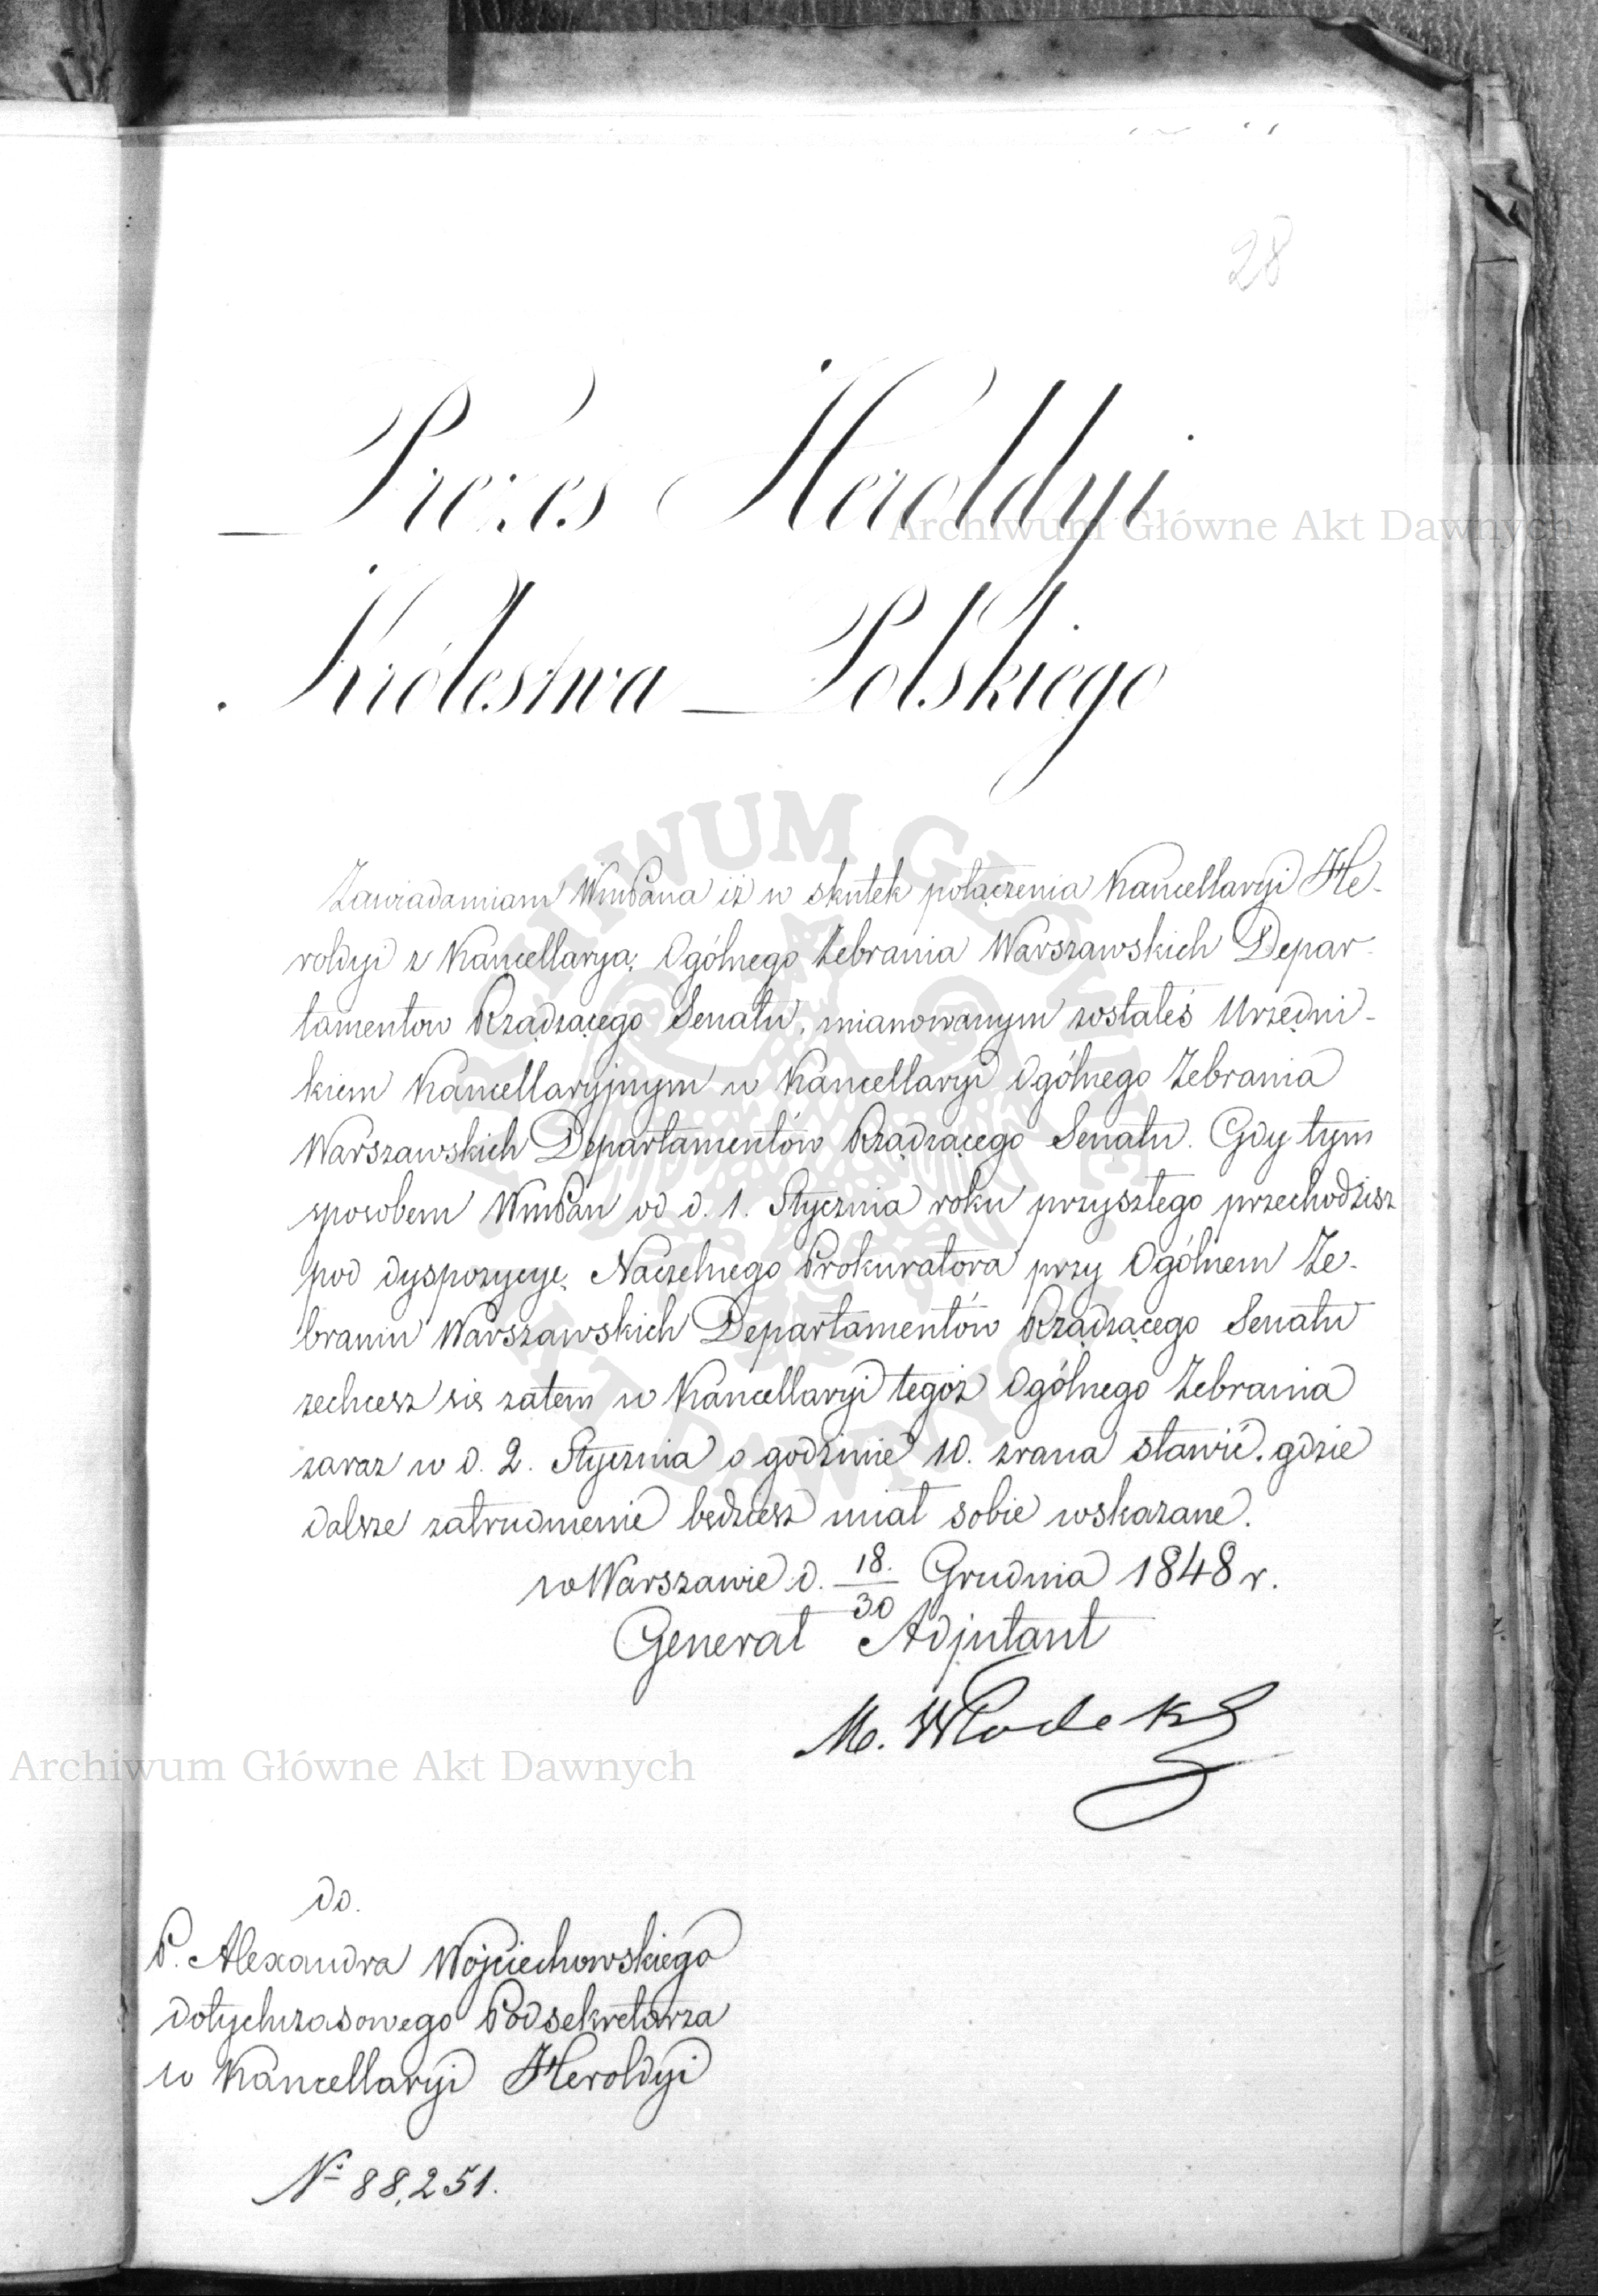 28
Prezes Heroldyi
Królestwa Polskiego
Zawiadamiam WmPana iż w skutek połączenia Kancellaryi He-
roldyi z Kancellaryą Ogólnego Zebrania Warszawskich Depar-
tamentow Rządzącego Senatu, mianowanym zostałeś Urzędni-
kiem Kancellaryjnym w Kancellaryi Ogólnego Zebrania
Warszawskich Departamentów Rządzącego Senatu. Gdy tym
sposobem WmPan od d. 1. Stycznia roku przyszłego przechodzisz
pod dyspozycyę Naczelnego Prokuratora przy Ogólnem Ze-
braniu Warszawskich Departamentów Rządzącego Senatu
zechcesz się zatem w Kancellaryi tegoż Ogólnego Zebrania
zaraz w d. 2. Stycznia o godzinie 10. zrana stawić. gdzie
dalsze zatrudnienie będziesz miał sobie wskazane.
w Warszawie d. 18./30 Grudnia 1848 r.
Generał Adjutant
M. Włodek
do.
P. Alexandra Wojciechowskiego
dotychczasowego Podsekretarza
w Kancellaryi Heroldyi
№ 88,251.
Archiwum Główne Akt Dawnych
ARCHIWUM GŁÓWNE AKT DAWNYCH
Archiwum Główne Akt Dawnych